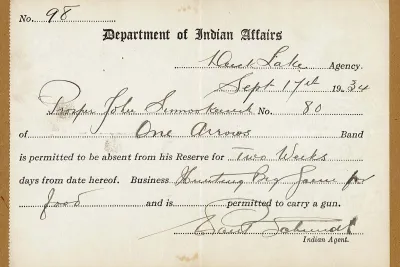 No. 98
Department of Indian Affairs
Duck Lake Agency.
Sept 17th 1934
John No. 80
of One Arrows Band
is permitted to be absent from his Reserve for Two Weeks
days from date hereof. Business Hunting Big Game for
food and is permitted to carry a gun.
Indian Agent.